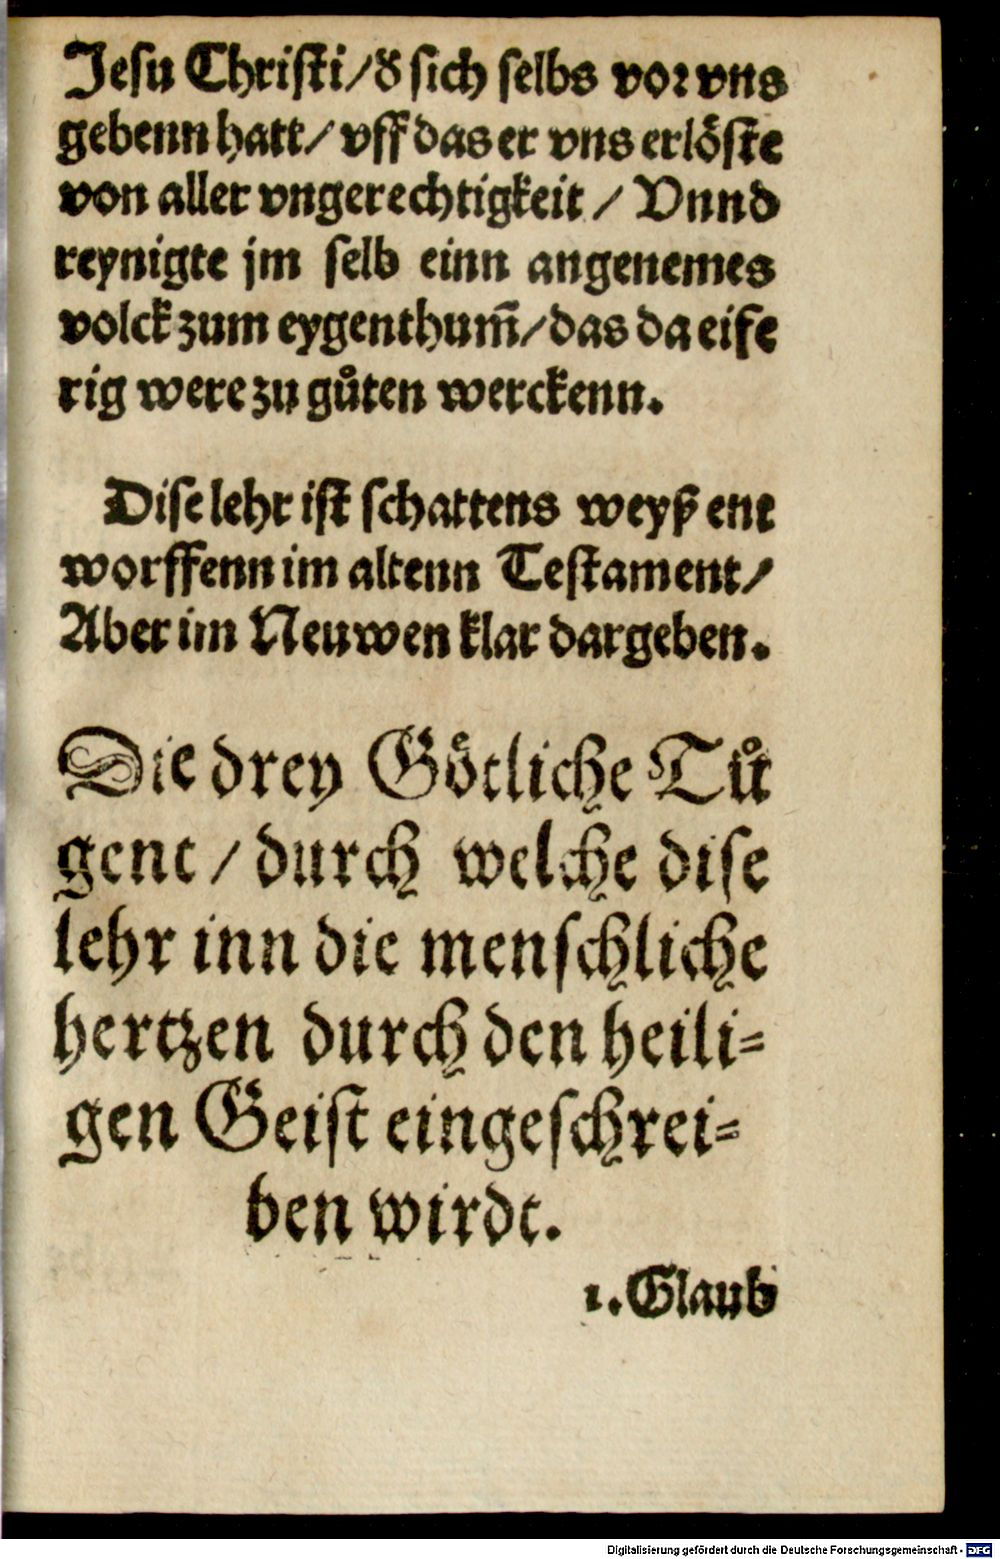 Jesu Christi/ď sich selbs vor vns
gebenn hatt/ vff das er vns erlöste
von aller vngerechtigkeit / Vnnd
reynigte jm selb einn angenemes
volck zum eygenthum̄/ das da eife
rig were zu gůten werckenn.
Dise lehr ist schattens weyß ent
worffenn im altenn Testament/
Aber im Neuwen klar dargeben.
Die drey Götliche Tů
gent / durch welche dise
lehr inn die menschliche
hertzen durch den heili=
gen Geist eingeschrei=
ben wirdt.
1. Glaub
Digitalisierung gefördert durch die Deutsche Forschungsgemeinschaft - DFG